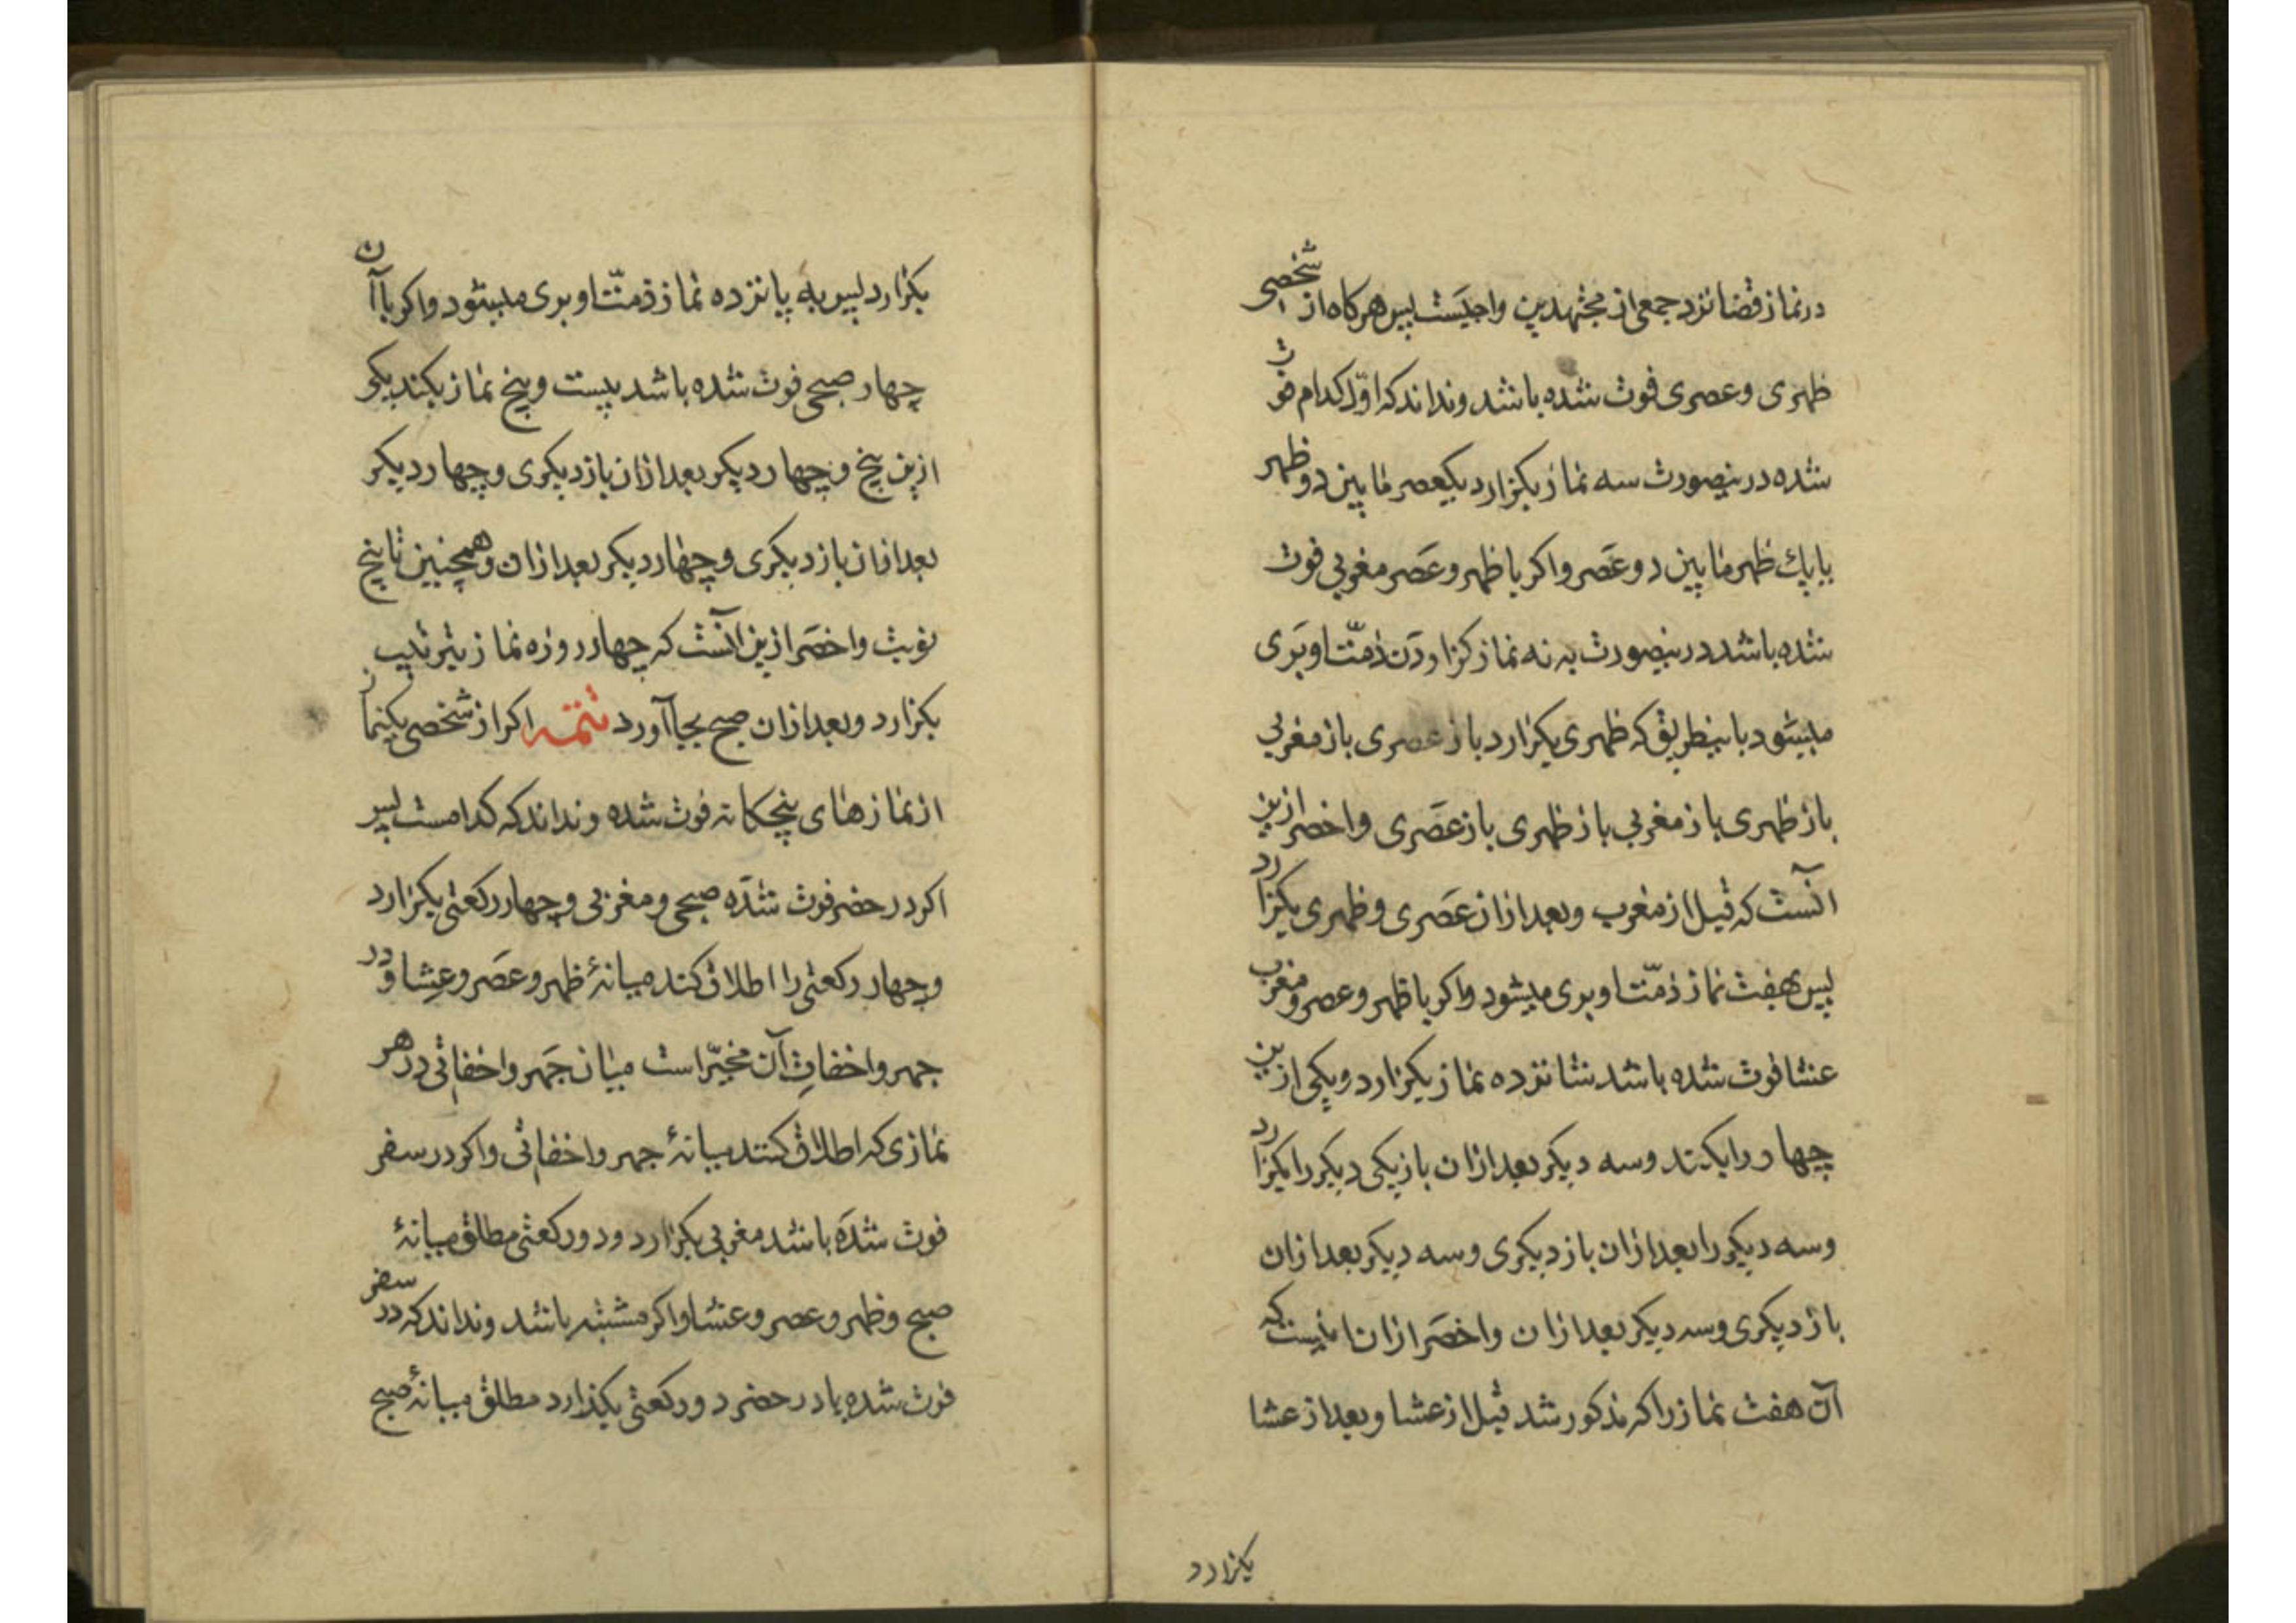 در نماز قضا نزد جمعی از مجتهدین واجبست پس هرکاه از شخصی
ظهری و عصری فوت شده باشد و نداند که اوّل کدام فوت
شده درینصورت سه نماز بکزارد یکعصر مابین دو ظهر
یا یك ظهر مابین دو عَصر و اکر با ظهر و عَصر مغربی فوت
شده باشد درینصورت به نه نماز کزاردن ذمّت او بَری
میشود باینطریق که ظهری بکزارد باز عصری باز مغربی
باز ظهری باز مغربی باز ظهری باز عَصری و اخصر ازین
آنست که قبل از مغرب و بعد ازان عَصری و ظهری بکزارد
پس بهفت نماز ذمّت او بری میشود و اکر با ظهر و عصر و مغرب
عشا فوت شده باشد شانزده نماز بکزارد و یکی ازین
چهار را بکند و سه دیکر بعد ازان باز یکی دیکر را بکزارد
و سه دیکر را بعد ازان باز دیکری و سه دیکر بعد ازان
باز دیکری و سه دیکر بعد ازان و اخصَر ازان اینست که
آن هفت نماز را که مذکور شد قبل از عشا و بعد از عشا
بکزارد
بکزارد پس به پانزده نماز ذمّت او بری میشود و اکر با آن
چهار صبحی فوت شده باشد بیست و پنج نماز بکند یکی
ازین پنج و چهار دیکر بعد ازان باز دیکری و چهار دیکر
بعد ازان باز دیکری و چهار دیکر بعد ازان و همچنین تا پنج
نوبت و اخصَر ازین آنست که چهار روزه نماز بترتیب
بکزارد و بعد ازان صبح بجا آورد تتمه اکر از شخصی یکنماز
از نمازهای پنجکانه فوت شده و نداند که کدامست پس
اکر در حضر فوت شدَه صبحی و مغربی و چهار رکعتی بکزارد
و چهار رکعتی را اطلاق کند میانهٔ ظهر و عصَر و عِشا و در
جهر و اخفاتِ آن مخیّر است میان جَهر و اخفاتی در هر
نمازی که اطلاق کنند میانهٔ جهر و اخفاتی و اکر در سفر
فوت شدَه باشد مغربی بکزارد و دو رکعتی مطلق میانهٔ
صبح و ظهر و عصر و عشا و اکر مشتبه باشد و نداند که در سفر
فوت شده یا در حضر دو رکعتی بکذارد مطلق میانهٔ صبح